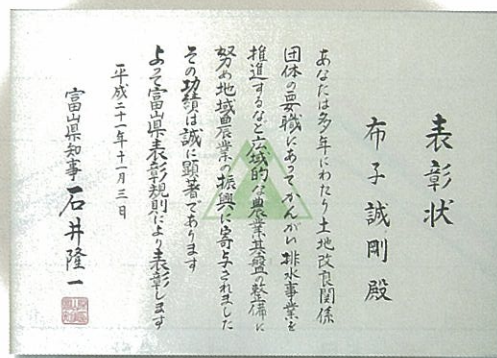 表彰状
布子誠剛殿
あなたは多年にわたり土地改良関係
団体の要職にあってかんがい排水事業を
推進するなど広域的な農業基盤の整備に
努め地域農業の振興に寄与されました
その功績は誠に顕著であります
よって富山県表彰規則により表彰します
平成二十一年十一月三日
富山県知事 石井隆一